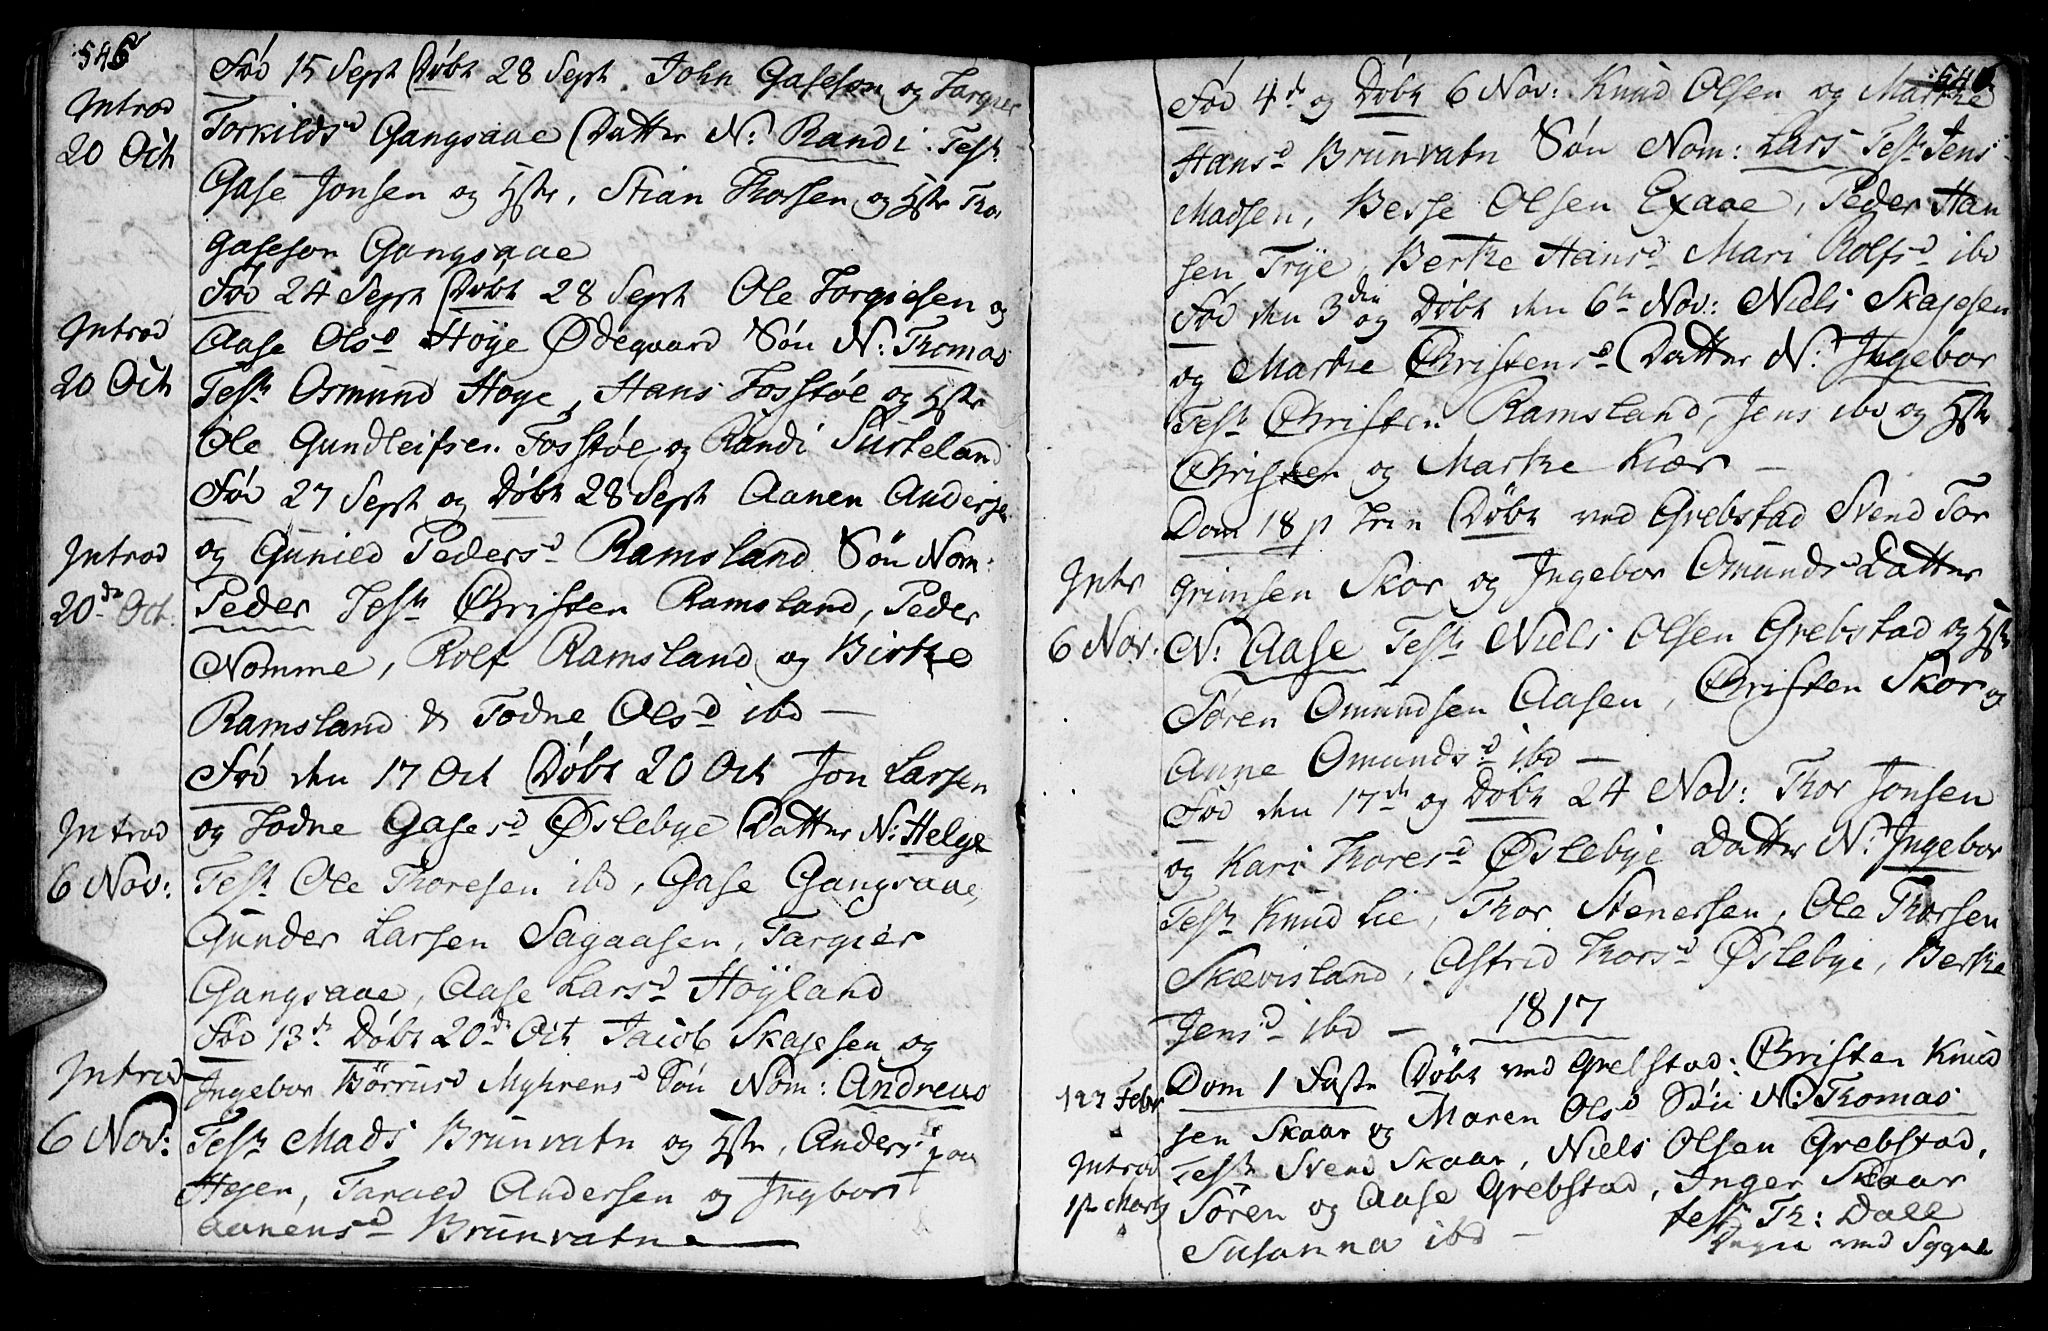 546
Introd
20 Oct
Fød 15 Sept Døbt 28 Sept. John Gaseson og Targier
Torkilds d Gangsaae Datter N: Randi. Test:
Gase Jonsen og Hstr, Stian Thorsen og Hstr Tho
gaseson Gangsaae
Introd
20 Oct
Fød 24 Sept Døbt 28 Sept Ole Torgiesen og
Aase Ols d Høye Ødegaard Søn N: Thomas
Test Osmund Høye, Hans Fosstøl og Hstr
Ole Gundleifsen Fosstøl og Randi Surteland
Introd
20 de Oct.
Fød 27 Sept og Døbt 28 Sept Aanen Anderse
og Gunild Peders d Ramsland Søn Nom:
Peder Test Christen Ramsland, Peder
Nomme, Rolf Ramsland og Birthe
Ramsland & Todne Ols d ibd —
Introd
6 Nov:
Fød den 17 Oct Døbt 20 Oct Jon Larsen
og Todne Gases d Øslebye Datter N: Helge
Test Ole Thoresen ibd, Gase Gangsaae,
Gunder Larsen Sagaasen, Targier
Gangsaae, Aase Lars d Høyland
Introd
6 Nov:
Fød 13 d Døbt 20 de Oct Jacob Skajesen og
Ingebor Børrus d Myhrens d Søn Nom: Andreas
Test Mads Brunvatn og Hstr, Anders paa
Hejen, Tarald Andersen og Ingbor
Aanens d Brunvatn —
Fød 4 de og Døbt 6 Nov: Knud Olsen og Marthe
Hans d Brunvatn Søn Nom: Lars Test Jens
Madsen, Besse Olsen Exaae, Peder Han
sen Trye, Berthe Hans d Mari Rolfs d ibd
Fød den 3 den og Døbt den 6 te Nov: Niels Skajesen
og Marthe Christens d Datter N: Ingebor
Test Christen Ramsland, Jens ibd og Hstr
Christen og Marthe Kiær —
Intr
6 Nov.
Dom 18 p Trin Døbt ved Grebstad Svend Tor
grimsen Skor og Ingebor Omunds Datter
N: Aase Test Niels Olsen Grebstad og Hstr
Søren Omundsen Aasen, Christen Skor og
Anne Omunds d ibd —
Fød den 17 de og Døbt 24 Nov: Thor Jonsen
og Kari Thores d Øslebye Datter N: Ingebor
Test Knud Lie, Thor Stenersen, Ole Thorsen
Skævisland, Astrid Thors d Øslebye, Berthe
Jens d ibd —
1817
Febr
Introd
Dom 1 Faste Døbt ved Grebstad: Christen Knud
sen Skaar og Maren Ols d Søn N: Thomas
Test Svend Skaar, Niels Olsen Grebstad,
Søren og Aase Grebstad, Inger Skaar
Susanna ibd —
test Th: Dall
Degn ved Sygne